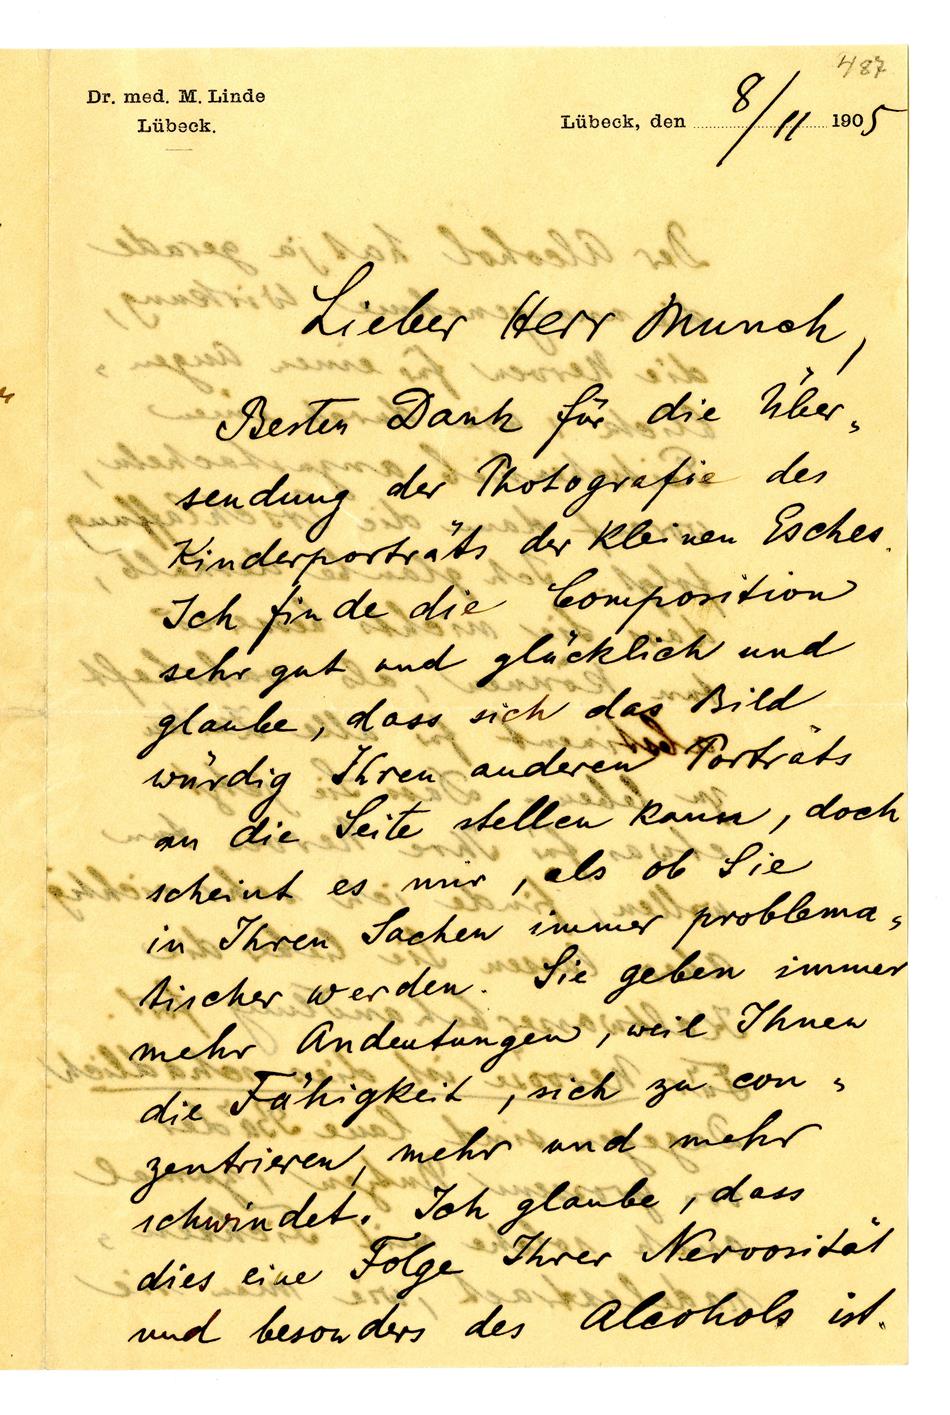 487
Dr. med. M. Linde
Lübeck.
Lübeck, den 8/11 1905
Lieber Herr Munch,
Besten Dank für die Über-
sendung der Photografie des
Kinderporträts der kleinen Esches.
Ich finde die Composition
sehr gut und glücklich und
glaube, dass sich das Bild
würdig Ihren anderen Porträts
an die Seite stellen kann, doch
scheint es mir, als ob Sie
in Ihren Sachen immer problema-
tischer werden. Sie geben immer
mehr Andeutungen, weil Ihnen
die Fähigkeit, sich zu con-
zentrieren, mehr und mehr
schwindet. Ich glaube, dass
dies eine Folge Ihrer Nervosität
und besonders des Alcohols ist.